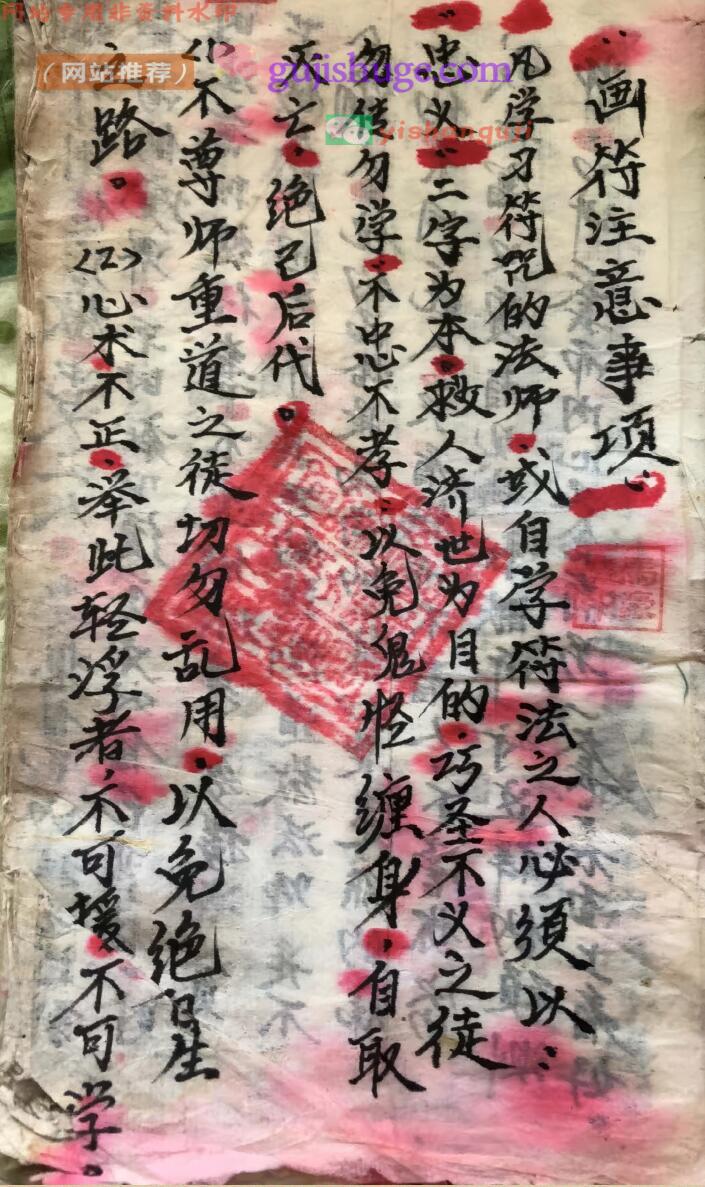 网站专用非资料水印
(网站推荐)
gujishuge.com
yishanguji
：画符注意事项：
凡学习符咒的法师。或自学符法之人必须以：
忠义：二字为本。救人济世为目的。巧圣不义之徒
勿传勿学。不忠不孝：以免鬼怪缠身，自取
灭亡。绝己后代。
〈1〉不尊师重道之徒切勿乱用。以免绝自生
之路。〈2〉心术不正。举此轻浮者，不可援。不可学。